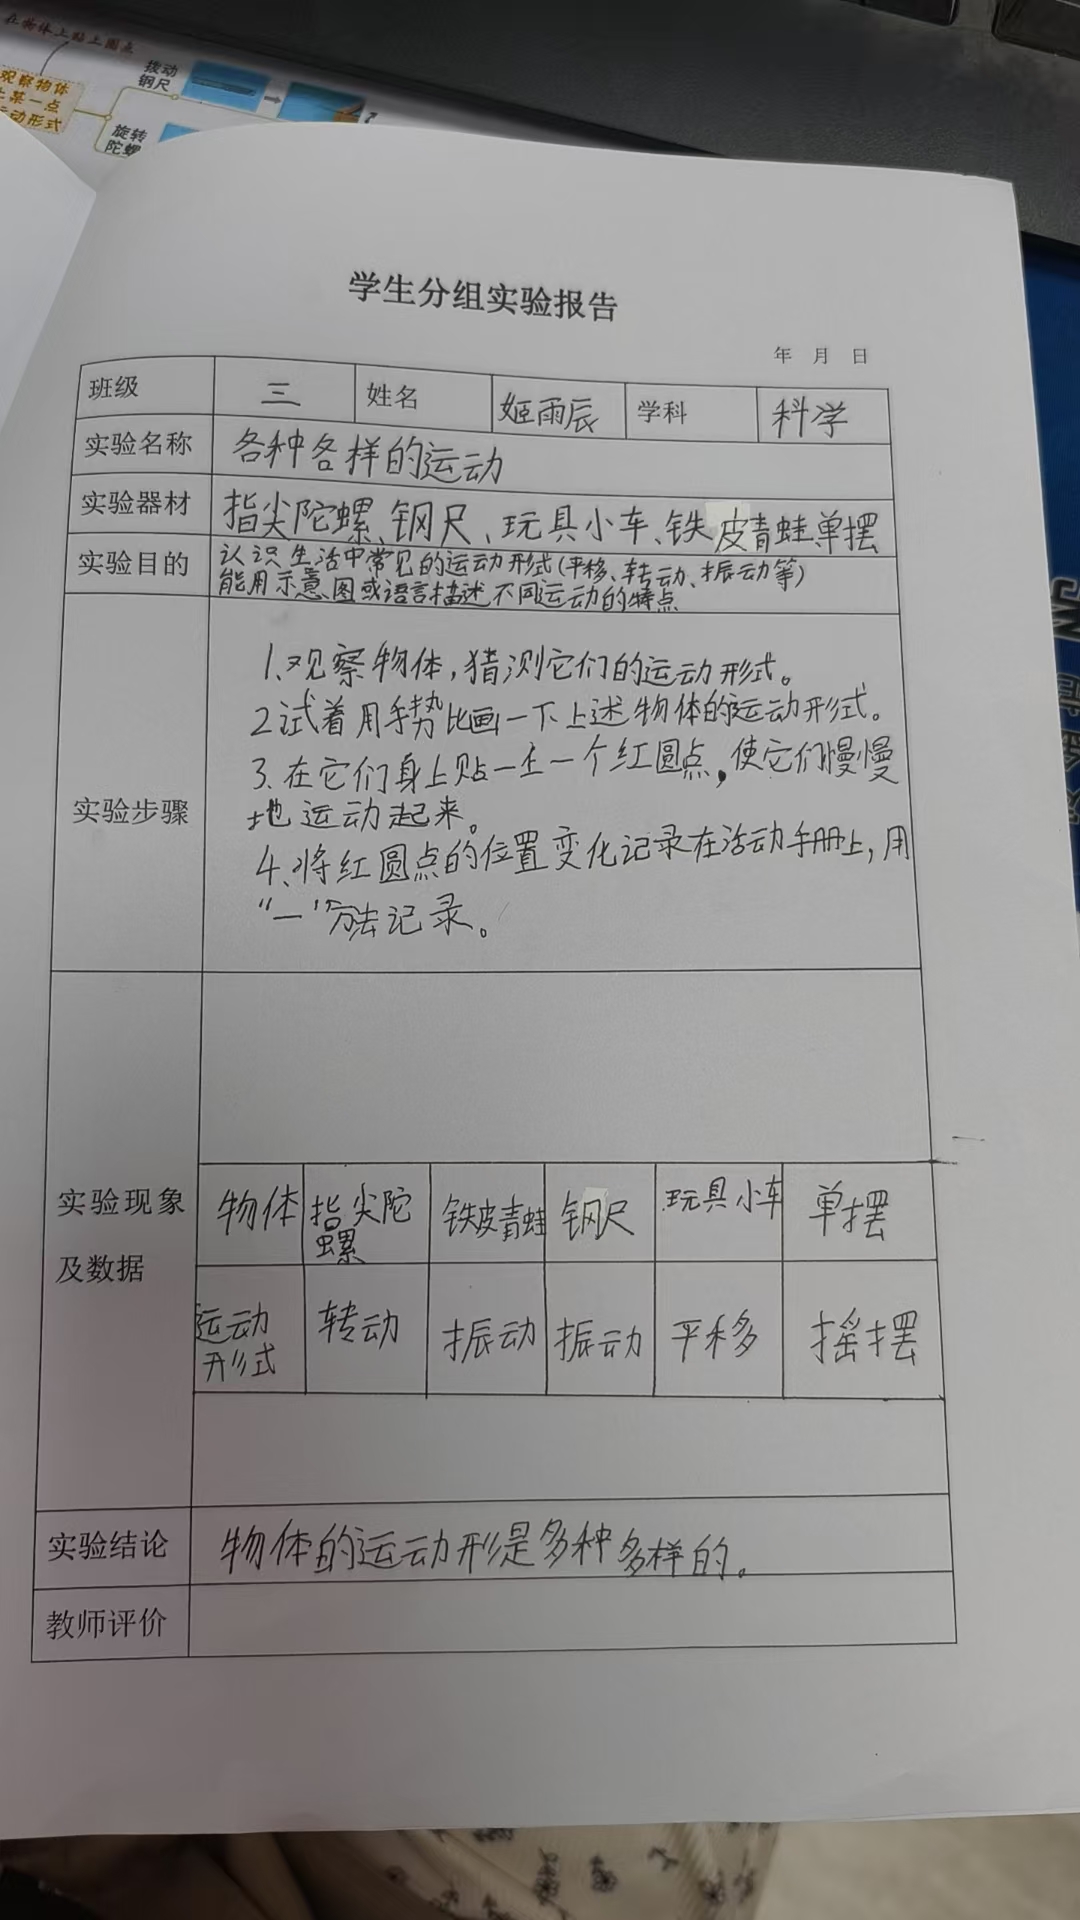 在物体上贴上圆点
观察物体
上某一点
动形式
拨动
钢尺
旋转
陀螺
学生分组实验报告
年 月 日
班级 三 姓名 姬雨辰 学科 科学
实验名称 各种各样的运动
实验器材 指尖陀螺、钢尺、玩具小车、铁皮青蛙、单摆
实验目的 认识生活中常见的运动形式(平移、转动、振动等)
能用示意图或语言描述不同运动的特点
实验步骤
1.观察物体,猜测它们的运动形式。
2试着用手势比画一下上述物体的运动形式。
3.在它们身上贴一上一个红圆点,使它们慢慢
地运动起来。
4、将红圆点的位置变化记录在活动手册上,用
“一”方法记录。
实验现象
及数据
物体 指尖陀螺 铁皮青蛙 钢尺 玩具小车 单摆
运动形式 转动 振动 振动 平移 摇摆
实验结论 物体的运动形是多种多样的。
教师评价